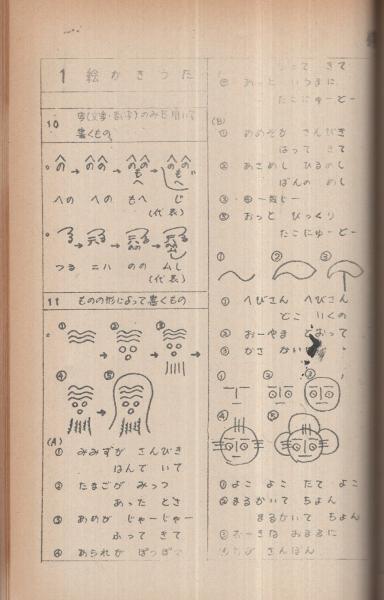 1 絵かきうた
10
字(文字・数字)のみを用いて
書くもの
への への もへ じ
(代表)
つる ニハ のの ムし
(代表)
11 ものの形によって書くもの
① ② ③
④ ⑤
(A)
① みみずが さんびき
はんて いて
② たまごが みっつ
あった とさ
③ あめが じゃーじゃー
ふって きて
④ あられが ぽつぽつ
って きて
⑤ あっと いうまに
たこにゅーどー
(B)
① あめぞが さんびき
はって きて
② あさめし ひるめし
ばんの めし
⑤ おっと びっくり
たこにゅーどー
① ② ③
① へびさん へびさん
どこ いくの
② おーやま とおって
③ かさ かい
① ② ③
④ ⑤
① よこ よこ たて よこ
② まるかいて ちょん
まるかいて ちょん
③ おーきな おまるに
さんぼん